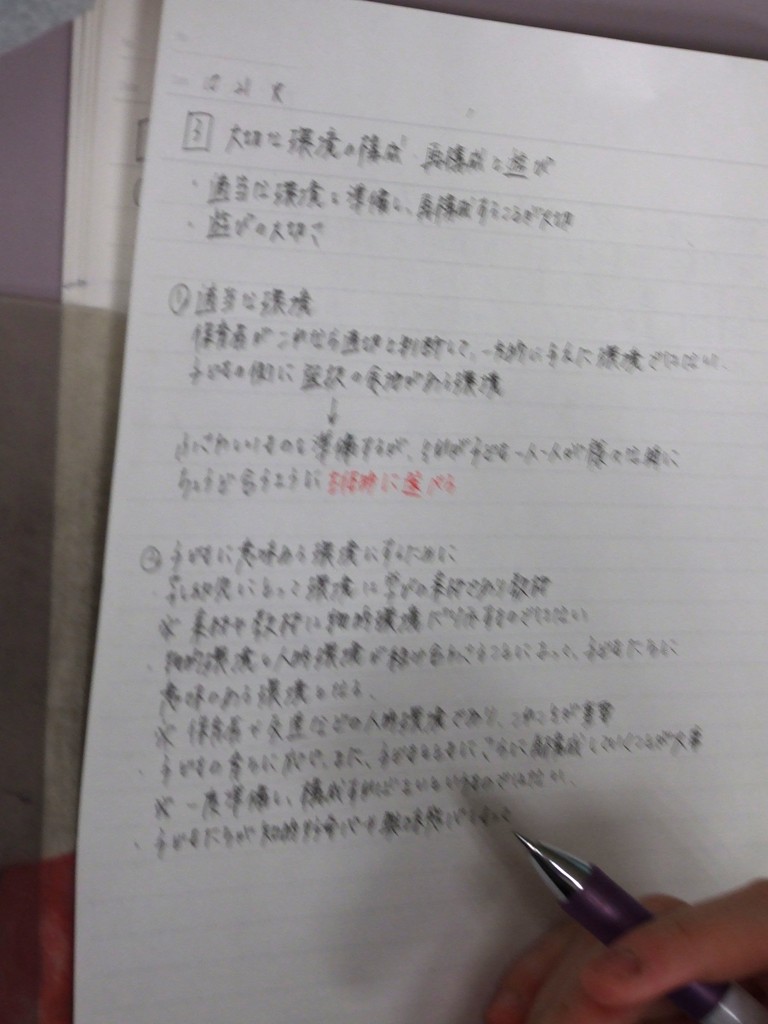 3 大切な環境の構成・再構成と遊び
・適当な環境を準備し、再構成することが大切
・遊びの大切さ
① 適当な環境
保育者がこれなら適切と判断して、一方的に与えた環境ではない。
子どもの側に選択の余地がある環境
↓
準備するが、それが子ども一人一人が様々な
ちょうど合うように
② 子どもに意味ある環境にするために
乳幼児にとって環境は学びの素材であり教材
※ 素材や教材は物的環境だけを示すものではない
・物的環境と人的環境が組み合わさることによって、子どもたちに
意味のある環境となる。
※ 保育者や友達などの人的環境であり、これこそが重要
・子どもの育ちに応じ、また、子どもとともに、さらに再構成していくことが大事
※ 一度準備し、構成すればよいというものではない。
・子どもたちが知的好奇心や興味